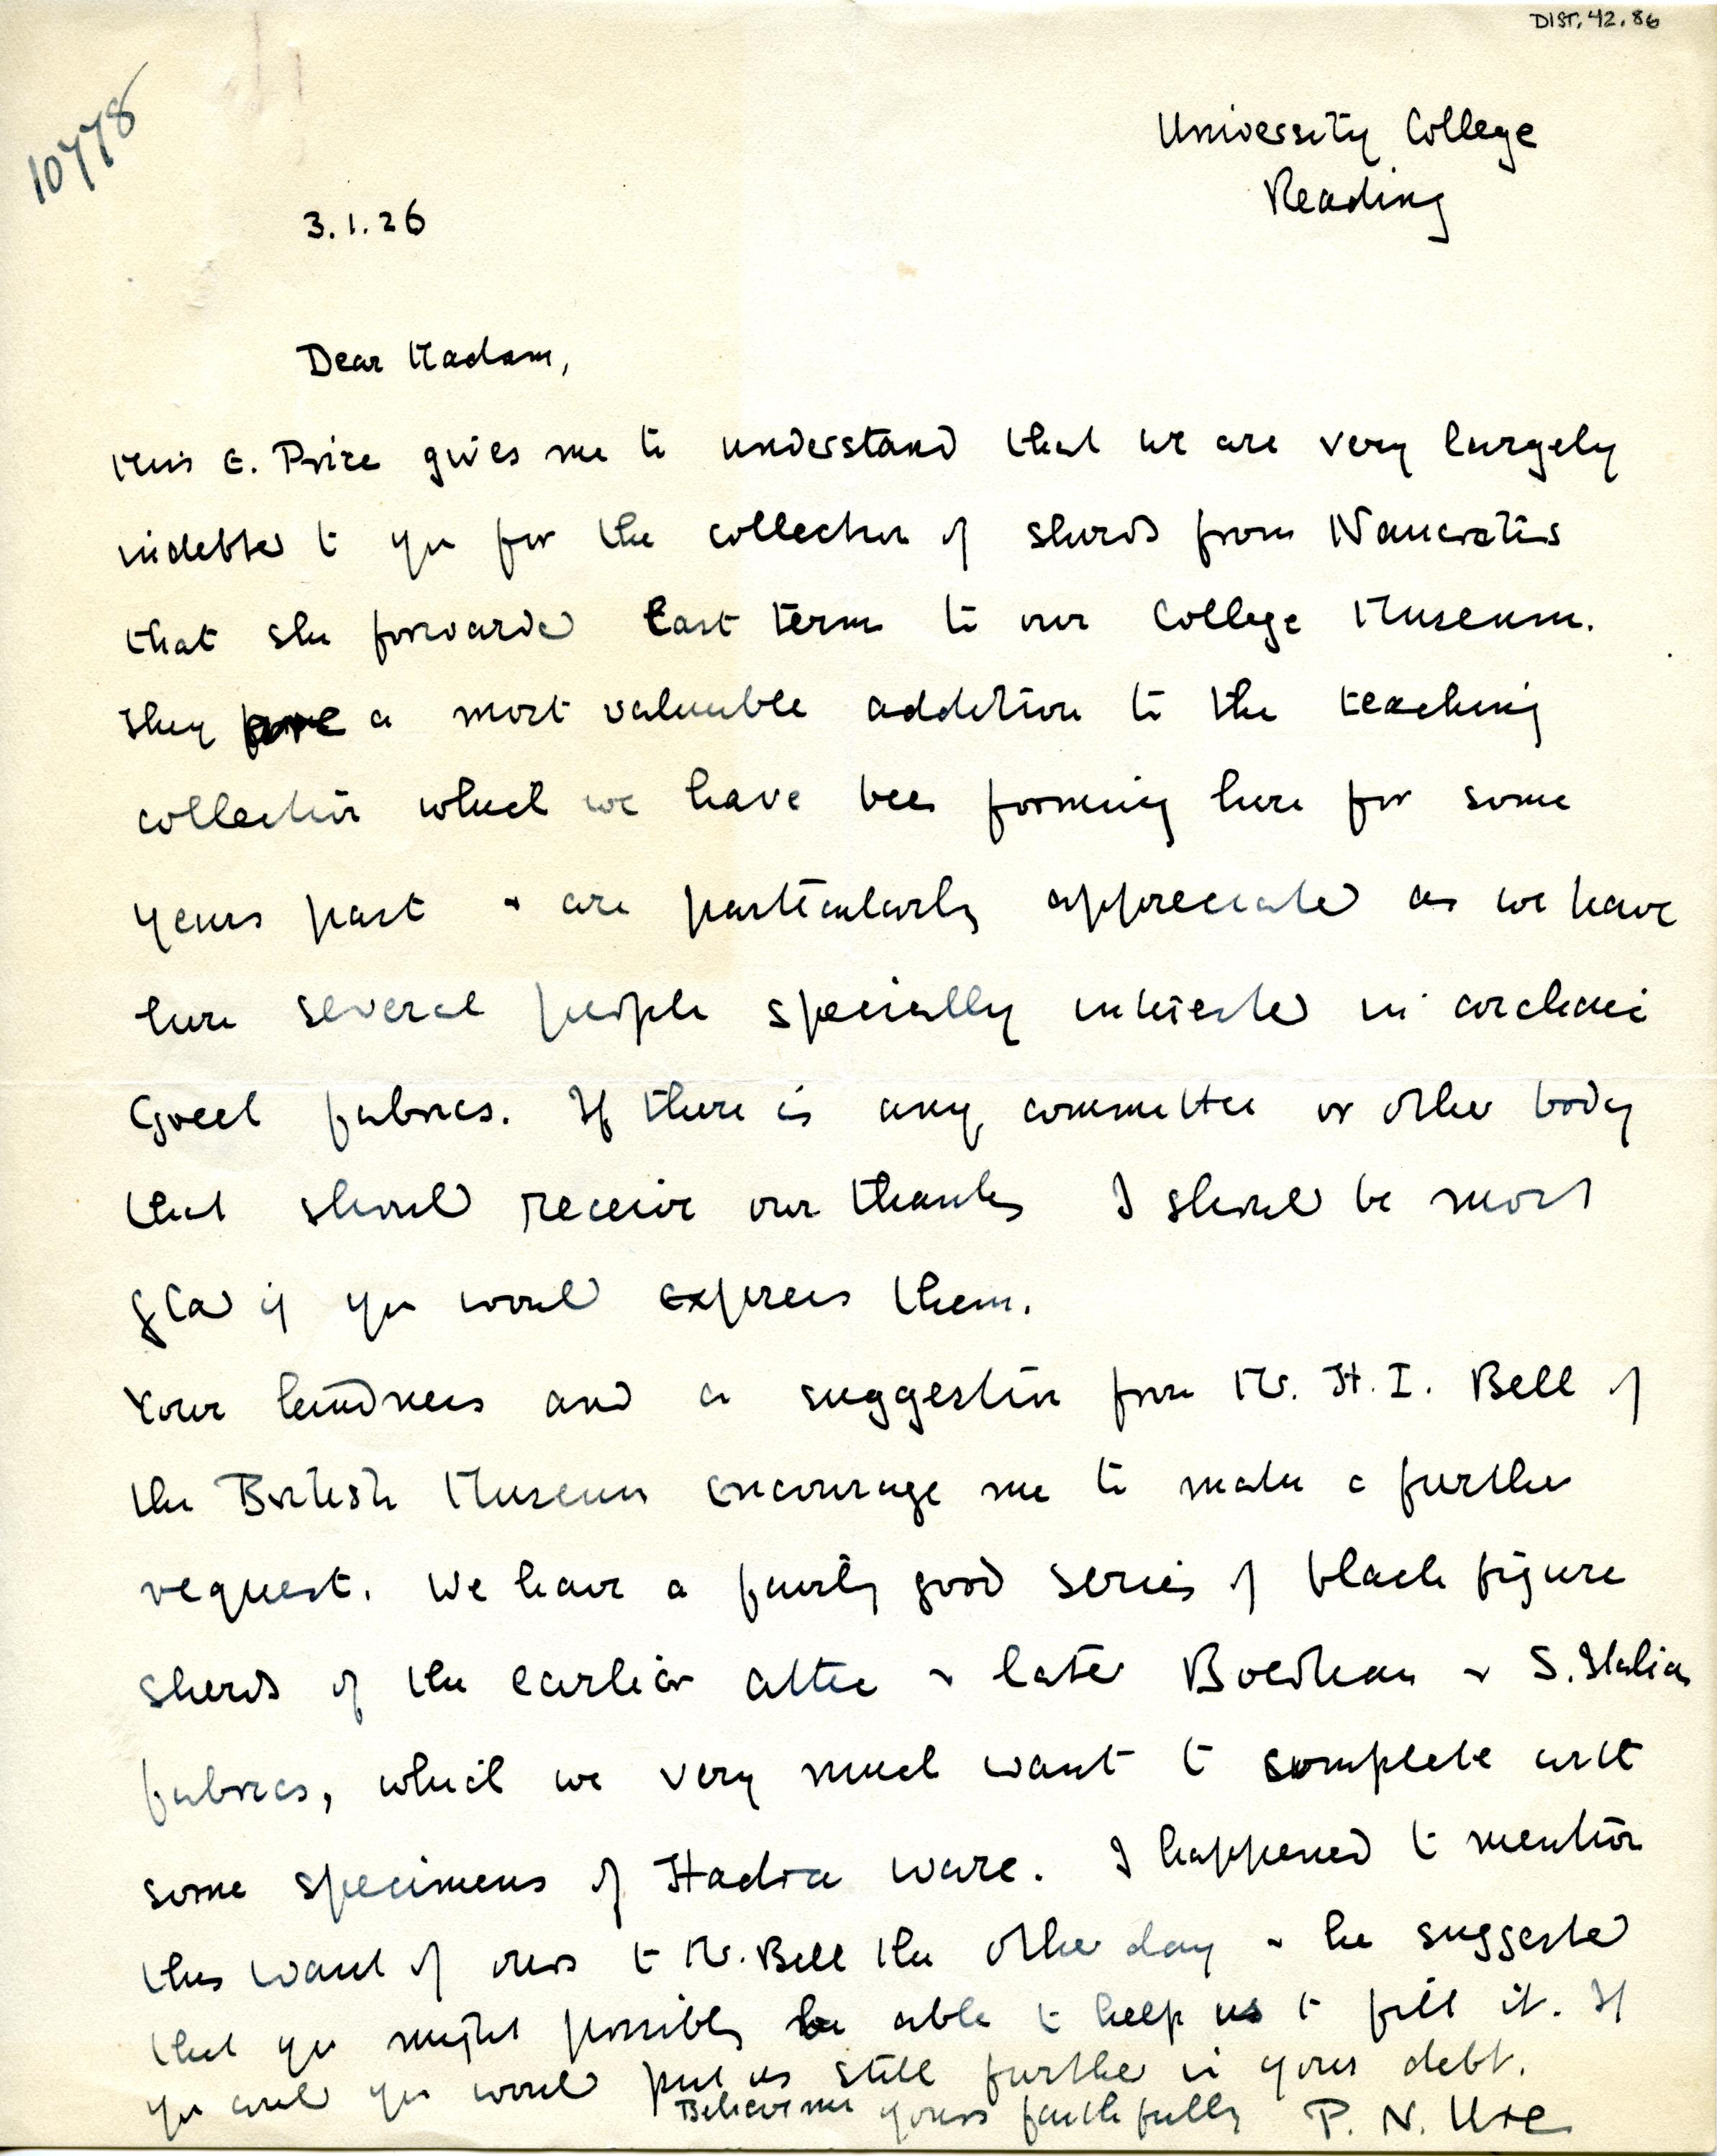 DIST. 42. 86
10778
University College
Reading
3.1.26
Dear Madam,
Miss E. Price gives me to understand that we are very largely
indebted to you for the collection of sherds from Naucratis
that she forwarded last term to our College Museum.
They a most valuable addition to the teaching
collection which we have been forming here for some
years past & are particularly appreciated as we have
here several people specially interested in archaic
Greek fabrics. If there is any committee or other body
that should receive our thanks I should be most
glad if you would express them.
Your kindness and a suggestion from Mr. H. I. Bell of
the British Museum encourage me to make a further
request. We have a fairly good series of black figure
sherds of the earlier Attic & later Boeotian & S. Italian
fabrics, which we very much want to complete with
some specimens of Hadra ware. I happened to mention
this want of ours to Mr. Bell the other day & he suggested
that you might possibly be able to help us to fill it. If
you could you would put us still further in your debt.
Believe me yours faithfully P. N. Ure